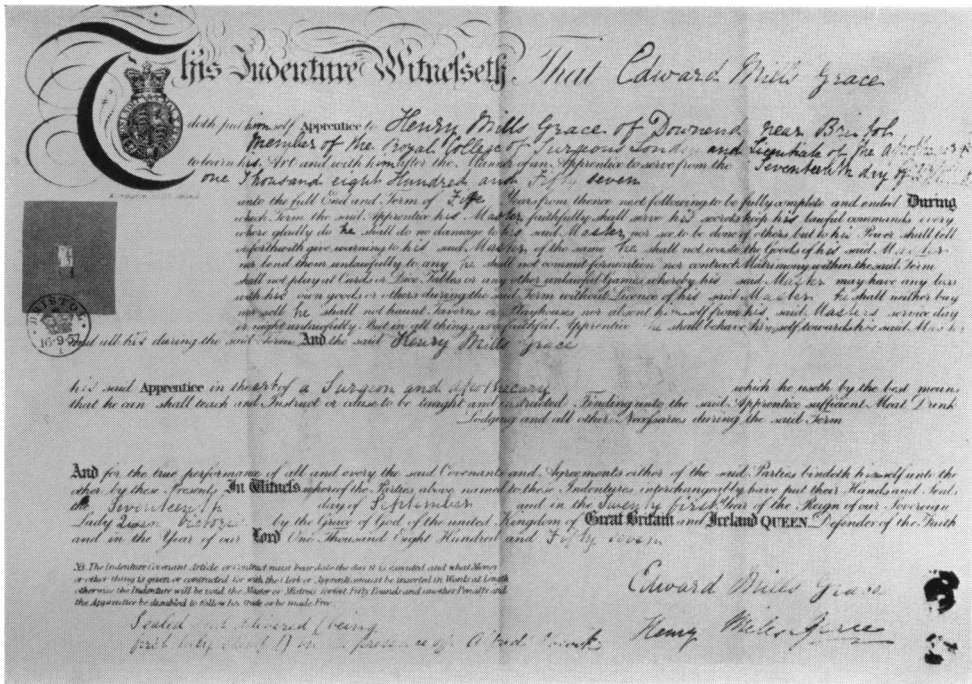 This Indenture Witnesseth That Edward Mills Grace
doth put himself Apprentice to Henry Mills Grace of Downend near Bristol
Member of the Royal College of Surgeons London and Licentiate of the
to learn his Art and with him after the Manner of an Apprentice to serve from the Seventeenth day of
one Thousand eight Hundred and Fifty seven
unto the full End and Term of Five Years from thence next following to be fully complete and ended During
which Term the said Apprentice his Master faithfully shall serve his secrets keep his lawful commands every
where gladly do he shall do no damage to his said Master nor see to be done of others but to his Power shall tell
or forthwith give warning to his said Master of the same he shall not waste the Goods of his said Master
nor lend them unlawfully to any he shall not commit fornication nor contract Matrimony within the said Term
shall not play at Cards or Dice Tables or any other unlawful Games whereby his said Master may have any loss
with his own goods or others during the said Term without Licence of his said Master he shall neither buy
nor sell he shall not haunt Taverns or Playhouses nor absent himself from his said Masters service day
or night unlawfully But in all things as a faithful Apprentice he shall behave himself towards his said Master
and all his during the said Term And the said Henry Mills Grace
his said Apprentice in the Art of a Surgeon and Apothecary which he useth by the best means
that he can shall teach and Instruct or cause to be taught and instructed Finding unto the said Apprentice sufficient Meat Drink
Lodging and all other Necessaries during the said Term
And for the true performance of all and every the said Covenants and Agreements either of the said Parties bindeth himself unto the
other by these Presents In Witness whereof the Parties above named to these Indentures interchangeably have put their Hands and Seals
the Seventeenth day of September and in the twenty first Year of the Reign of our Sovereign
Lady Queen Victoria by the Grace of God of the united Kingdom of Great Britain and Ireland QUEEN Defender of the Faith
and in the Year of our Lord One Thousand Eight Hundred and Fifty seven
NB. The Indenture Covenant Article or Contract must bear date the day it is executed and what Money
or other thing is given or contracted for with the Clerk or Apprentice must be inserted in Words at Length
otherwise the Indenture will be void the Master or Mistress forfeit Fifty Pounds and another Penalty and
the Apprentice be disabled to follow his trade or be made Free
Edward Mills Grace
Henry Mills Grace
Sealed and delivered (being
first duly stamped) in the presence of
BRISTOL
16-9-57